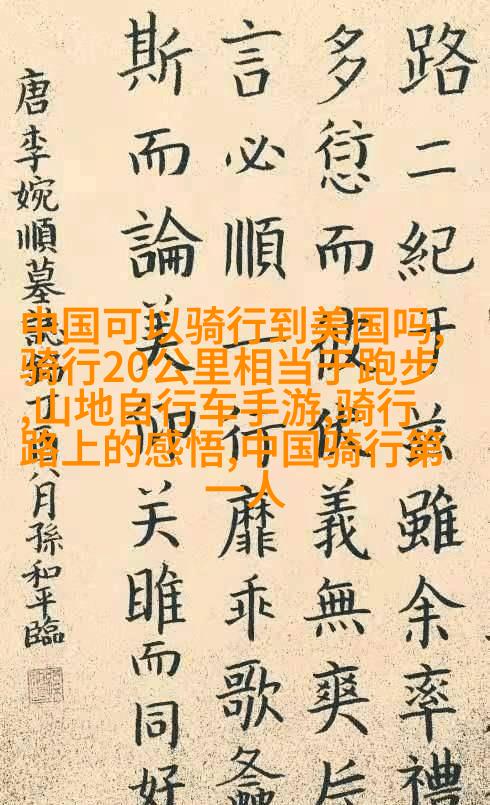 中国可以骑行到美国吗,
骑行20公里相当于跑步
,山地自行车手游,骑行
路上的感悟,中国骑行第
一人
路二紀于茲雖余率禮
多愆而義無爽
言必順一行靡乖歌
斯而論美关睢而同好
唐李婉順墓誌八月孫和平臨